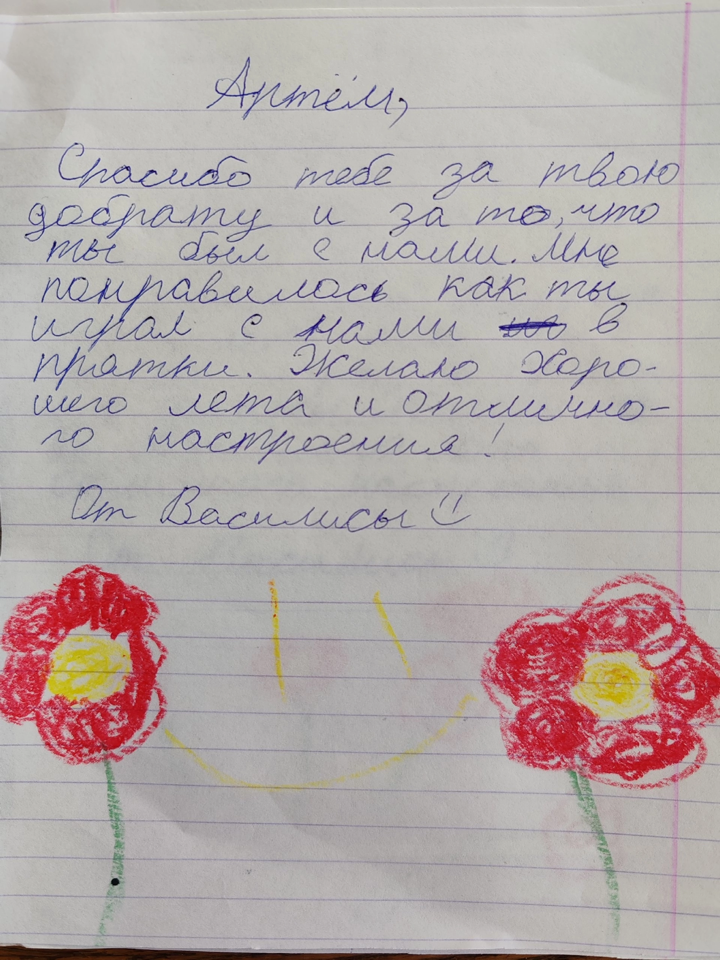 Артём,
Спасибо тебе за твою
добрату и за то, что
ты был с нами. Мне
понравилось как ты
играл с нами в
прятки. Желаю хоро-
шего лета и отлично-
го настроения!
От Василисы